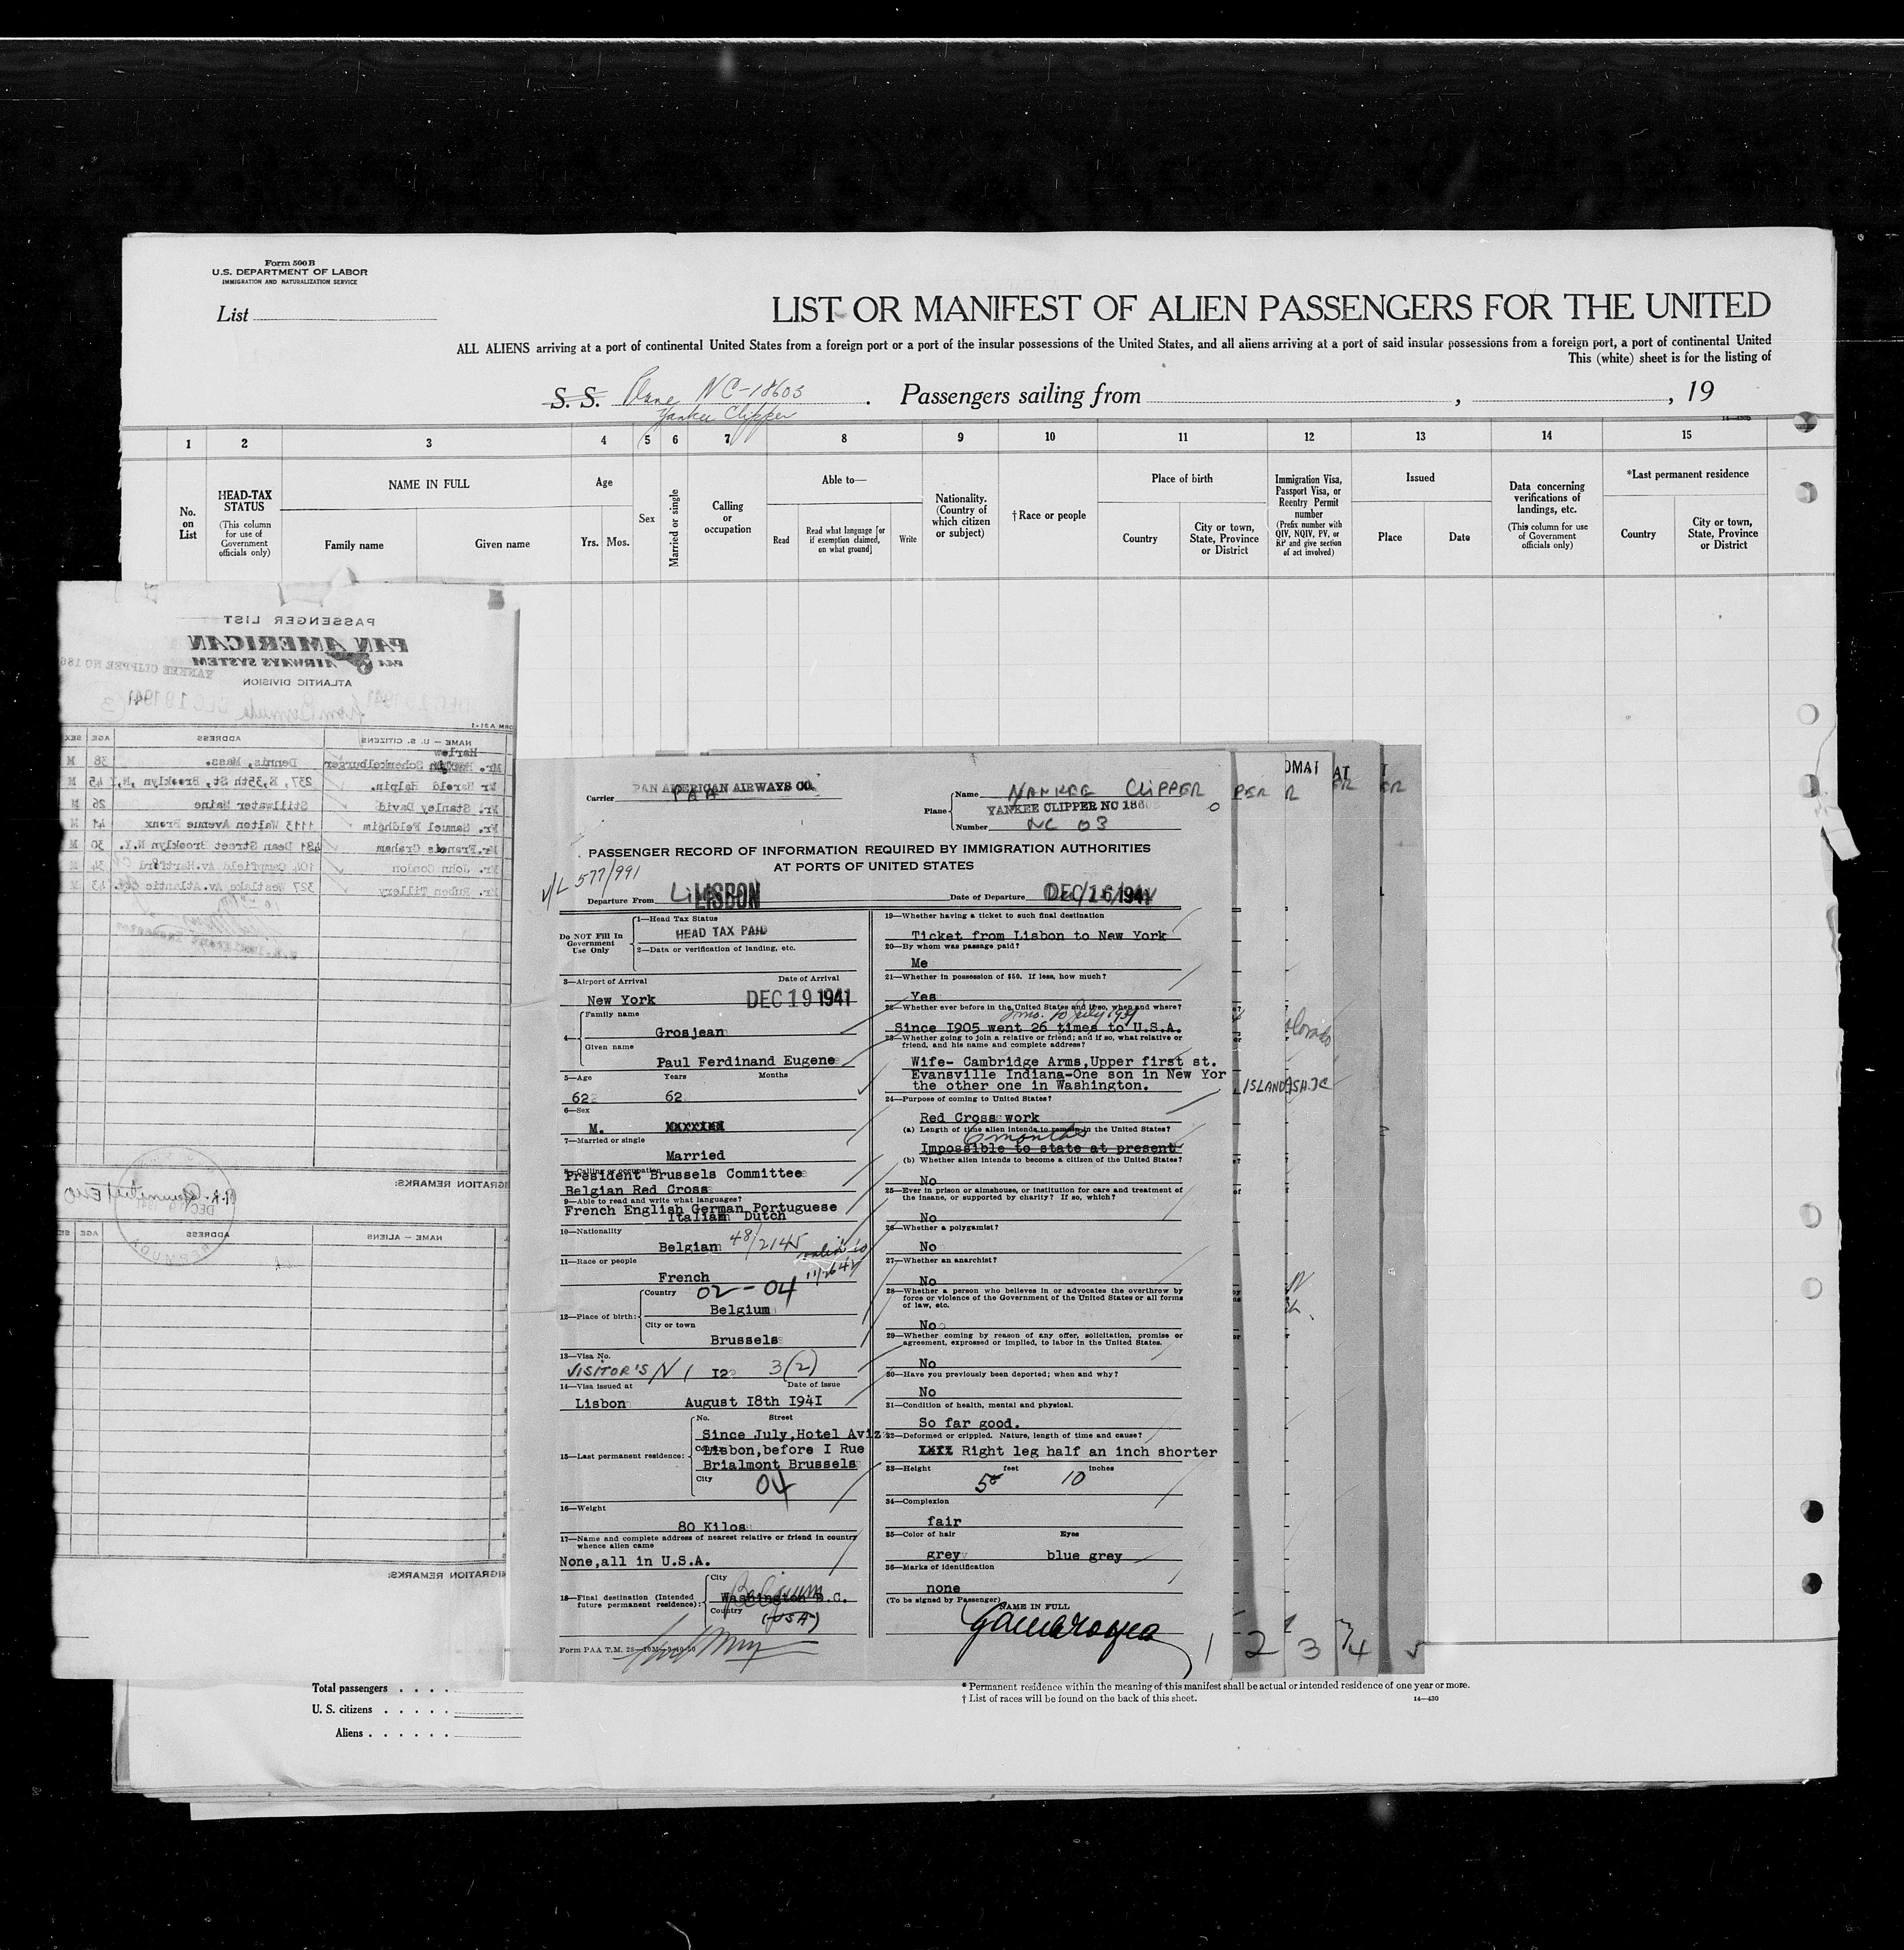 Form 500 B
U.S. DEPARTMENT OF LABOR
IMMIGRATION AND NATURALIZATION SERVICE
List
LIST OR MANIFEST OF ALIEN PASSENGERS FOR THE UNITED
ALL ALIENS arriving at a port of continental United States from a foreign port or a port of the insular possessions of the United States, and all aliens arriving at a port of said insular possessions from a foreign port, a port of continental United
This (white) sheet is for the listing of
S. S. Plane NC-18603 . Passengers sailing from , , 19
Yankee Clipper
1 2 3 4 5 6 7 8 9 10 11 12 13 14 15
No. on List
HEAD-TAX STATUS
(This column for use of Government officials only)
NAME IN FULL
Family name Given name
Age
Yrs. Mos.
Sex
Married or single
Calling or occupation
Able to—
Read
Read what language [or if exemption claimed, on what ground]
Write
Nationality. (Country of which citizen or subject)
† Race or people
Place of birth
Country
City or town, State, Province or District
Immigration Visa, Passport Visa, or Reentry Permit number
(Prefix number with QIV, NQIV, PV, or RP and give section of act involved)
Issued
Place Date
Data concerning verifications of landings, etc.
(This column for use of Government officials only)
*Last permanent residence
Country
City or town, State, Province or District
PASSENGER LIST
PAN AMERICAN
PAA AIRWAYS SYSTEM
YANKEE CLIPPER NC 186
ATLANTIC DIVISION
from Bermuda DEC 19 1941
NAME - U. S. CITIZENS ADDRESS AGE SEX
Harlow
Mr. Schenkelburger Dennis, Mass. 38 M
Mr Harold Halpin. 237, E,35th St, Brooklyn ,N.Y 45 M
Mr. Stanley David Stillwater Maine 26 M
Mr. Samuel Feldheim 1113 Walton Avenue Bronx 41 M
Mr.Francis Graham 481 Dean Street Brooklyn N.Y. 30 M
Mr. John Gordon 104 Campfield Av.Hartford 34 M
Mr. Ruben Tillery 327 Westlake Av.Atlantic City. 43 M
IGRATION REMARKS:
DEC 19 1941
BERMUDA
NAME - ALIENS ADDRESS AGE SEX
IGRATION REMARKS:
Carrier PAN AMERICAN AIRWAYS CO.
PAA
Plane Name YANKEE CLIPPER
YANKEE CLIPPER NC 18603
Number NC 03
PASSENGER RECORD OF INFORMATION REQUIRED BY IMMIGRATION AUTHORITIES
AT PORTS OF UNITED STATES
V/L 577/991
Departure From LISBON Date of Departure DEC 16 1941
Do NOT Fill In Government Use Only
1—Head Tax Status
HEAD TAX PAID
2—Data or verification of landing, etc.
3—Airport of Arrival Date of Arrival
New York DEC 19 1941
4— Family name
Grosjean
Given name
Paul Ferdinand Eugene
5—Age Years Months
62 62
6—Sex
M.
7—Married or single
Married
8—Calling or occupation
President Brussels Committee
Belgian Red Cross
9—Able to read and write what languages?
French English German Portuguese
Italian Dutch
10—Nationality
Belgian 48/2145
11—Race or people
French
02-04
12—Place of birth: Country
Belgium
City or town
Brussels
13—Visa No.
VISITOR'S N I 12 3(2)
14—Visa issued at Date of issue
Lisbon August 18th 1941
15—Last permanent residence: No. Street
Since July,Hotel Aviz
Lisbon,before I Rue
Brialmont Brussels
City
04
16—Weight
80 Kilos
17—Name and complete address of nearest relative or friend in country whence alien came
None,all in U.S.A.
18—Final destination (Intended future permanent residence): City
Washington D.C.
Belgium
Country (USA)
Form PAA T.M. 28—10M—9-40-50
19—Whether having a ticket to such final destination
Ticket from Lisbon to New York
20—By whom was passage paid?
Me
21—Whether in possession of $50. If less, how much?
Yes
22—Whether ever before in the United States and if so, when and where?
Since 1905 went 26 times to U.S.A.
23—Whether going to join a relative or friend; and if so, what relative or friend, and his name and complete address?
Wife- Cambridge Arms,Upper first st.
Evansville Indiana-One son in New Yor
the other one in Washington.
24—Purpose of coming to United States?
Red Cross work
(a) Length of time alien intends to remain in the United States?
6 months
Impossible to state at present
(b) Whether alien intends to become a citizen of the United States?
No
25—Ever in prison or almshouse, or institution for care and treatment of the insane, or supported by charity? If so, which?
No
26—Whether a polygamist?
No
27—Whether an anarchist?
No
28—Whether a person who believes in or advocates the overthrow by force or violence of the Government of the United States or all forms of law, etc.
No
29—Whether coming by reason of any offer, solicitation, promise or agreement, expressed or implied, to labor in the United States.
No
30—Have you previously been deported; when and why?
No
31—Condition of health, mental and physical.
So far good.
32—Deformed or crippled. Nature, length of time and cause?
Right leg half an inch shorter
33—Height feet inches
5 10
34—Complexion
fair
35—Color of hair Eyes
grey blue grey
36—Marks of identification
none
(To be signed by Passenger)
NAME IN FULL
1 2 3 4 5
Total passengers . . . .
U. S. citizens . . . . .
Aliens . . . . . .
* Permanent residence within the meaning of this manifest shall be actual or intended residence of one year or more.
† List of races will be found on the back of this sheet.
14—430